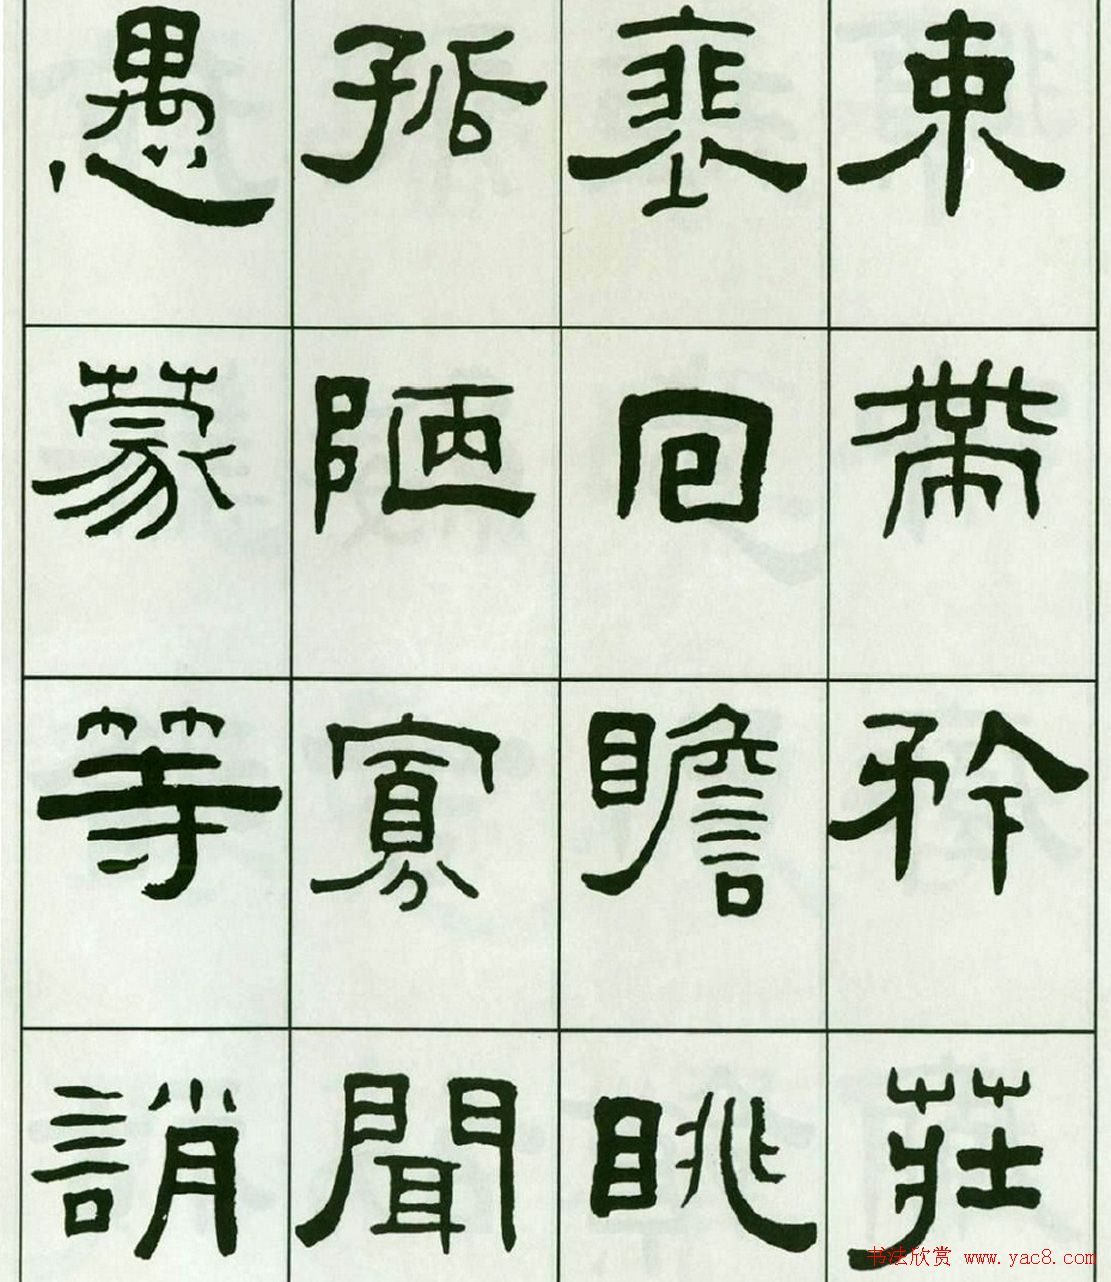 束帶矜莊
裵回瞻眺
孤陋寡聞
愚蒙等誚
书法欣赏 www.yac8.com